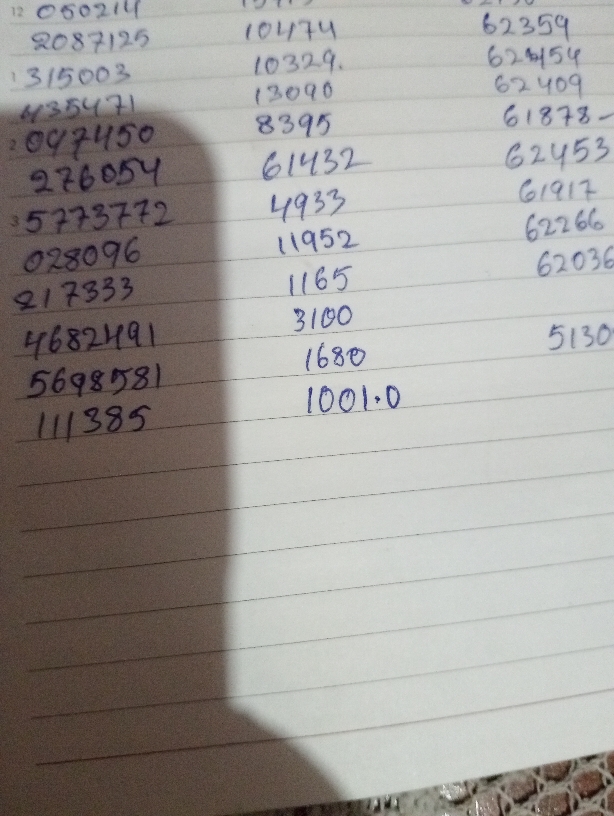 12 050214
2087125 10474 62359
1 315003 10329. 62454
435471 13090 62409
2 047450 8395 61878-
276054 61432 62453
3 5773772 4933 61917
028096 11952 62266
217333 1165 62036
4682491 3100
5698581 1680 5130
111385 1001.0